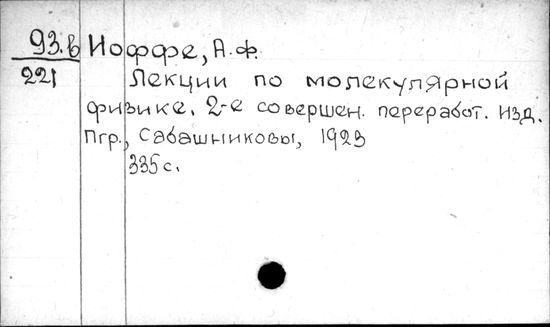 93.в Иоффе, А.Ф.
221 Лекции по молекулярной
физике. 2-е совершен. переработ. изд.
Пгр., Сабашниковы, 1923
335 с.